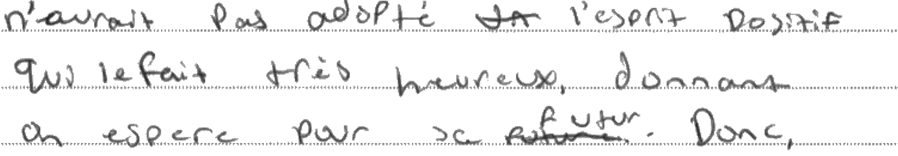 n'aurait pas adopté l'esprit positif
qui le fait très heureux, donnant
on espere pour sa futur. Donc,